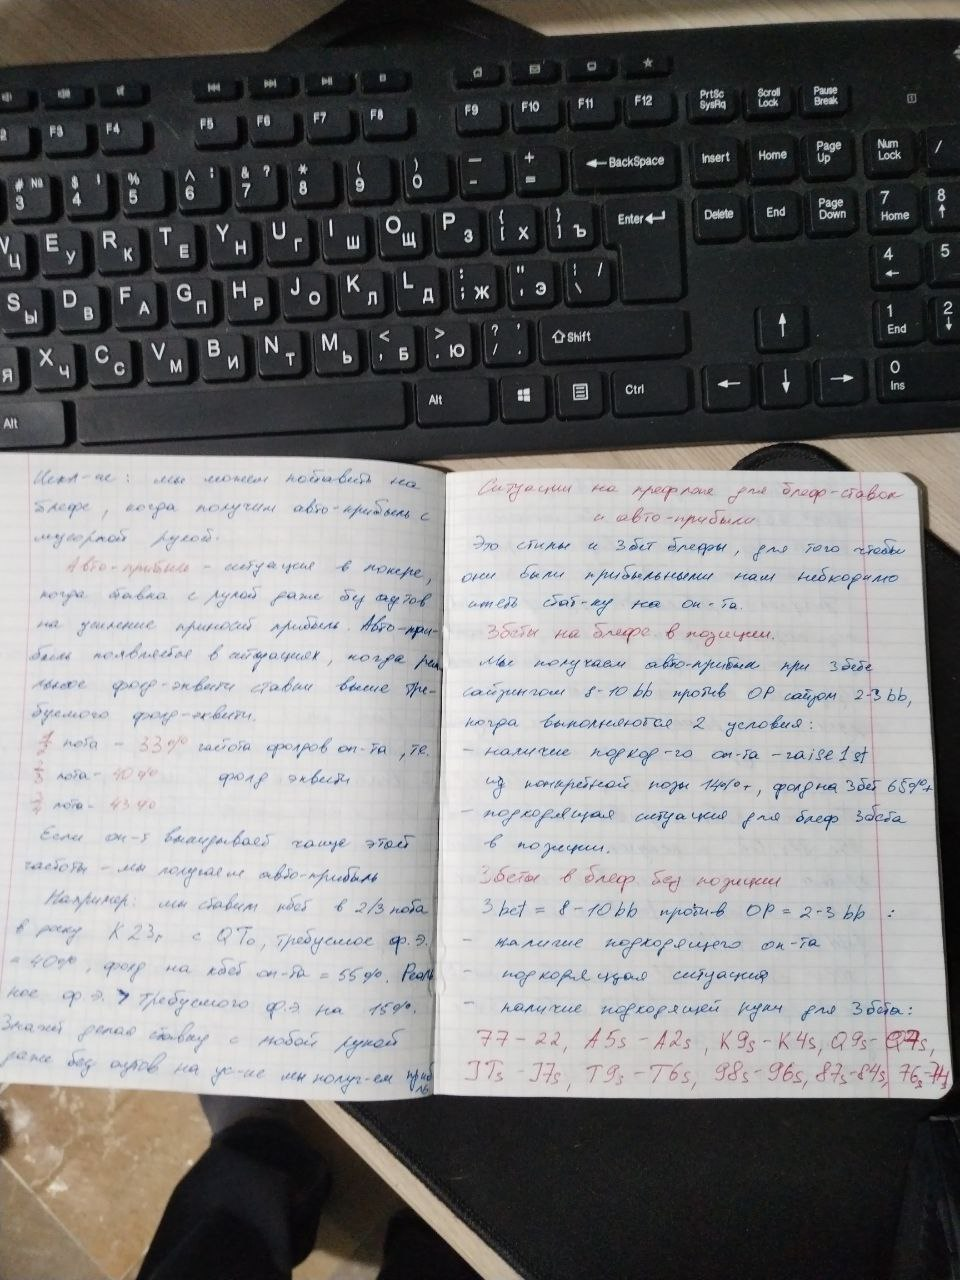 # № 3
$ 4
% 5
^ : 6
& ? 7
* 8
( 9
) 0
_ -
+ =
BackSpace
F3
F4
F5
F6
F7
F8
F9
F10
F11
F12
PrtSc SysRq
Scroll Lock
Pause Break
Insert
Home
Page Up
Num Lock
/
Ц
E У
R К
T Е
Y Н
U Г
I Ш
O Щ
P З
{ [ Х
} ] Ъ
Enter
Delete
End
Page Down
7 Home
8
S Ы
D В
F А
G П
H Р
J О
K Л
L Д
: ; Ж
" ' Э
| / \
4
5
Я
X Ч
C С
V М
B И
N Т
M Ь
< , Б
> . Ю
? / .
Shift
1 End
2
Alt
Alt
Ctrl
0 Ins
Искл-ие: мы можем поставить на
блефе, когда получим авто-прибыль с
мусорной рукой.
Авто-прибыль - ситуация в покере,
когда ставка с рукой даже без аутов
на усиление приносит прибыль. Авто-при-
быль появляется в ситуациях, когда реа
льное фолд-эквити ставки выше тре-
буемого фолд-эквити.
пота - 33% частота фолдов оп-та, т.е.
пота - 40% фолд эквити
пота - 43%
Если оп-т выкидывает чаще этой
частоты - мы получаем авто-прибыль
Например: мы ставим кбет в 2/3 пота
в раку K23r с QTo, требуемое ф.э.
= 40%, фолд на кбет оп-та = 55%. Реаль
ное ф.э. > требуемого ф.э. на 15%.
Значит делая ставку с любой рукой
даже без аутов на ус-ие мы получ-ем приб
ль
Ситуации на префлопе для блеф-ставок
и авто-прибыли
Это стилы и 3бет блефы, для того чтобы
они были прибыльными нам небходимо
иметь стат-ку на оп-та.
3беты на блефе в позиции.
Мы получаем авто-прибыль при 3бете
сайзингом 8-10 bb против ОР сайзом 2-3 bb,
когда выполняются 2 условия:
- наличие подход-го оп-та - raise 1st
из конкретной позы 14%+, фолд на 3бет 65%+
- подходящая ситуация для блеф 3бета
в позиции.
3беты в блеф без позиции
3bet = 8-10 bb против ОР = 2-3 bb :
- наличие подходящего оп-та
- подходящая ситуация
- наличие подходящей руки для 3бета:
77 - 22, A5s - A2s, K9s - K4s, Q9s - Q7s,
JTs - J7s, T9s - T6s, 98s - 96s, 87s - 84s, 76s - 74s